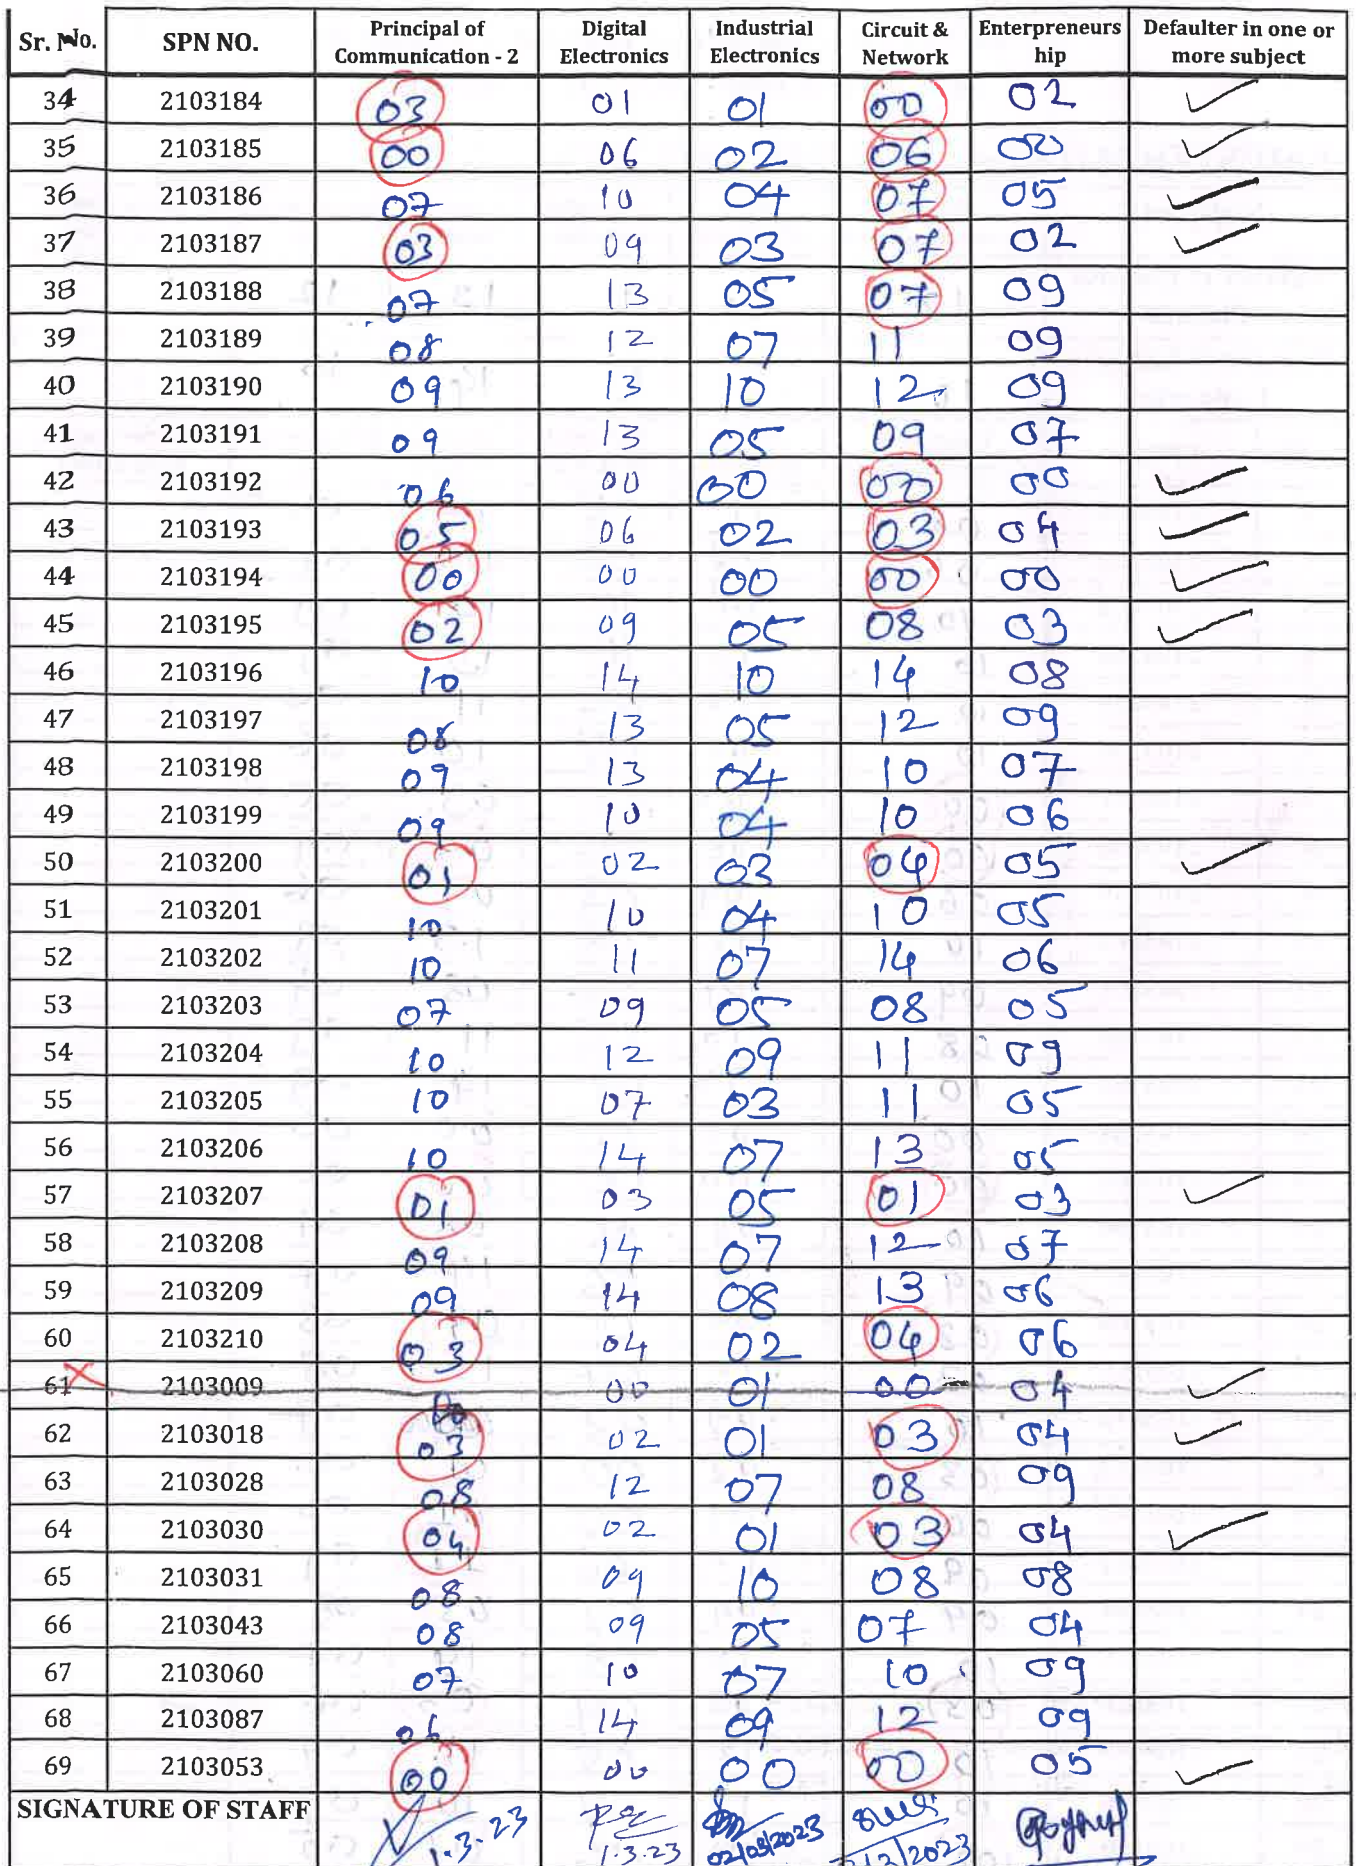 Sr. No. SPN NO. Principal of Communication - 2 Digital Electronics Industrial Electronics Circuit & Network Enterpreneurs hip Defaulter in one or more subject
34 2103184 03 01 01 00 02 ✓
35 2103185 00 06 02 06 00 ✓
36 2103186 07 10 04 07 05 ✓
37 2103187 03 09 03 07 02 ✓
38 2103188 07 13 05 07 09
39 2103189 08 12 07 11 09
40 2103190 09 13 10 12 09
41 2103191 09 13 05 09 07
42 2103192 06 00 00 00 00 ✓
43 2103193 05 06 02 03 04 ✓
44 2103194 00 00 00 00 00 ✓
45 2103195 02 09 05 08 03 ✓
46 2103196 10 14 10 14 08
47 2103197 08 13 05 12 09
48 2103198 09 13 04 10 07
49 2103199 09 10 04 10 06
50 2103200 01 02 03 04 05 ✓
51 2103201 10 10 04 10 05
52 2103202 10 11 07 14 06
53 2103203 07 09 05 08 05
54 2103204 10 12 09 11 09
55 2103205 10 07 03 11 05
56 2103206 10 14 07 13 05
57 2103207 01 03 05 01 03 ✓
58 2103208 09 14 07 12 07
59 2103209 09 14 08 13 06
60 2103210 03 04 02 04 06
61 2103009 00 01 00 04 ✓
62 2103018 03 02 01 03 04 ✓
63 2103028 08 12 07 08 09
64 2103030 04 02 01 03 04 ✓
65 2103031 08 09 10 08 08
66 2103043 08 09 05 07 04
67 2103060 07 10 07 10 09
68 2103087 06 14 09 12 09
69 2103053 00 00 00 00 05 ✓
SIGNATURE OF STAFF 1.3.23 1.3.23 02/03/2023 /3/2023